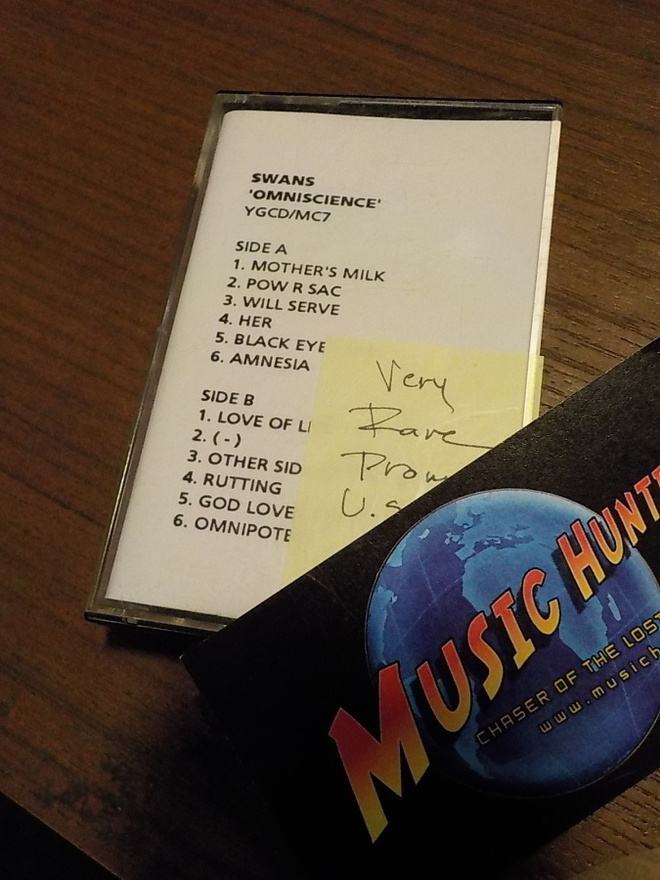 SWANS
'OMNISCIENCE'
YGCD/MC7
SIDE A
1. MOTHER'S MILK
2. POW R SAC
3. WILL SERVE
4. HER
5. BLACK EYE
6. AMNESIA
SIDE B
1. LOVE OF LI
2. (-)
3. OTHER SID
4. RUTTING
5. GOD LOVE
6. OMNIPOTE
Very
Rare
Prom
U.S
MUSIC HUNTE
CHASER OF THE LOST
www.musich